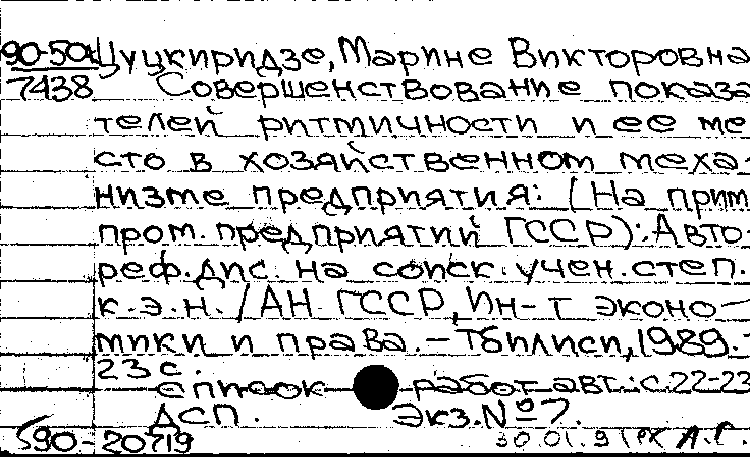 90-50к Цуцкиридзе, Марине Викторовна
7438 Совершенствование показа
телей ритмичности и ее ме
сто в хозяйственном меха-
низме предприятия: (На прим
пром. предприятий ГССР): Авто-
реф. дис. на соиск. учен. степ.
к.э.н. / АН ГССР, Ин-т эконо-
мики и права. – Тбилиси, 1989. -
23 с.
список работ авт.: с. 22-23
ДСП. Экз. № 7.
590-20719 30.01.91 А.Г.